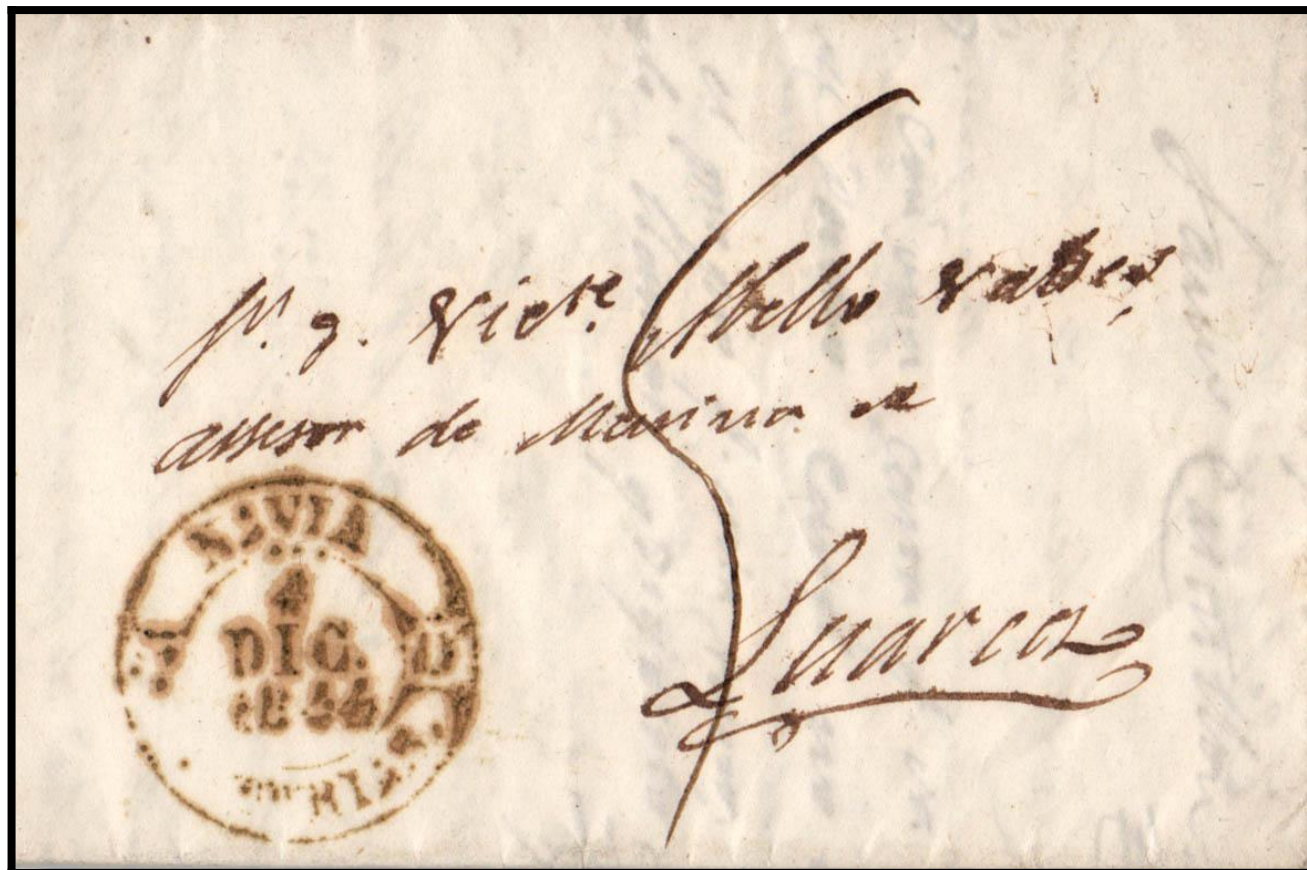 Sr. D. Victe. Abello Valdes
assesor de Marina en
Luarca
NAVIA
4
DIC.
1844